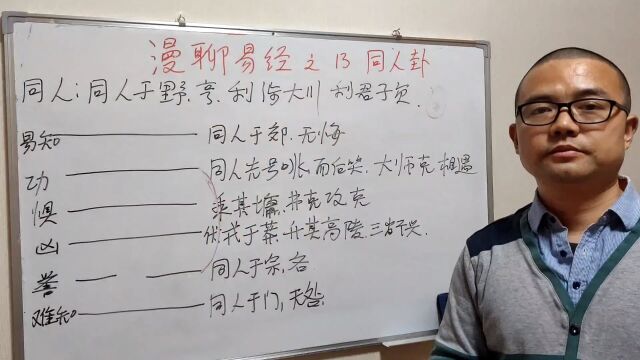 漫聊易经之13同人卦
同人:同人于野.亨.利涉大川 利君子贞.
易知 同人于郊.无悔
功 同人先号咷而后笑.大师克.相遇
惧 乘其墉.弗克攻克
凶 伏戎于莽.升其高陵.三岁不兴.
誉 同人于宗,吝
难知 同人于门,无咎.